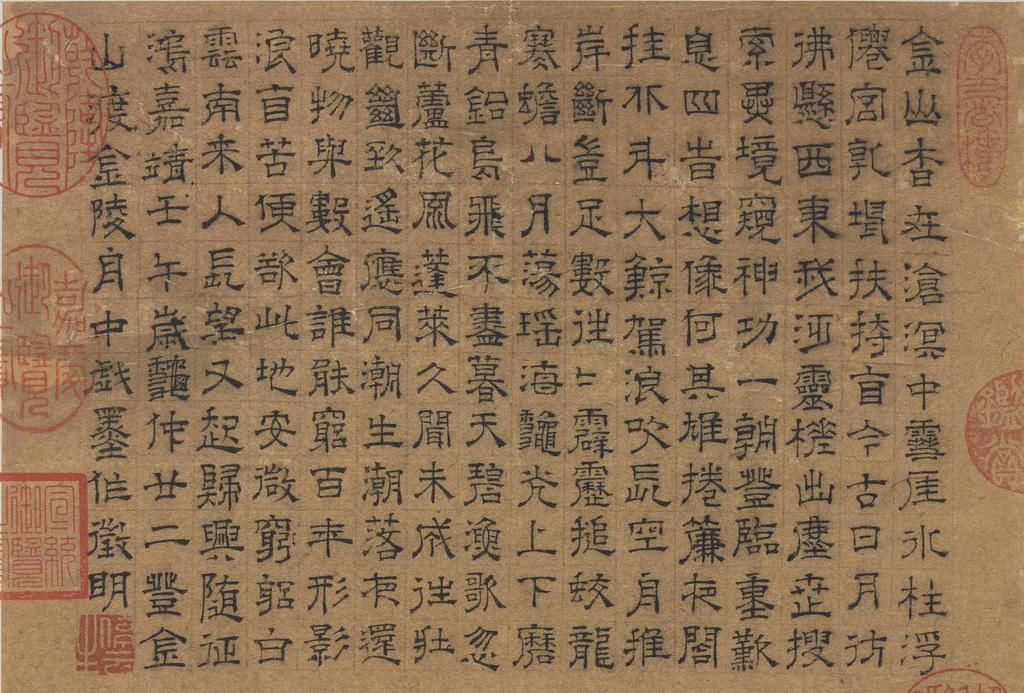 金山杳在滄溟中雪崖冰柱浮
僊宮乾堛扶持自今古日月彷
彿懸西東我泛靈槎出塵世搜
索異境窺神功一朝登臨重歎
息四時想像何其雄捲簾夜閣
挂北斗大鯨駕浪吹長空舟摧
岸斷豈足數往〻霹靂搥蛟龍
寒蟾八月蕩瑤海龝光上下磨
青鉛鳥飛不盡暮天碧漁歌忽
斷蘆花風蓬萊久聞未成往壯
觀絕致遙應同潮生潮落夜還
曉物與數會誰能窮百年形影
浪自苦便欲此地安微窮躳白
雲南来人長望又起歸興隨征
鴻嘉靖壬午歲龝仲廿二登金
山渡金陵舟中戲墨作徵明